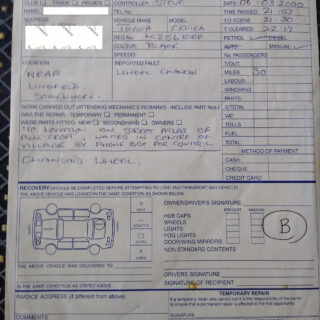 CLUB □ TRADE □ PRIVATE □ CONTROLLER STEVE DATE 06 03 2000
NAME TEL No TIME PASSED 21.03
ADDRESS VEHICLE MAKE MODEL TO SCENE 21.30
TOYOTA CELICA T CLEARED 22.17
REG No PETROL DIESEL
COLOUR BLACK AUTO MANUAL
SPEEDO No PASSENGERS
LOCATION REPORTED FAULT TOLL
NEAR WHEEL CHANGE MILES 30
LINGFIELD LABOUR
SOMEWHERE. WINCHING
WORK CARRIED OUT (ATTENDING MECHANICS REMARKS - INCLUDE PART Nos.) PARTS
WAS THE REPAIR: TEMPORARY □ PERMANENT □ S/TOTAL
WERE PARTS FITTED: NEW □ SECONDHAND □ OWNERS □ VAT
NO LOCATION ON STREET ATLAS OF TOLLS
CROFT, WAITED IN CENTRE OF FUEL
VILLAGE BY PHONE BOX FOR CONTROL TOTAL
CHANGED WHEEL METHOD OF PAYMENT
CASH
CHEQUE
CREDIT CARD
RECOVERY (SHOULD BE COMPLETED BEFORE ATTEMPTING TO LOAD AND TRANSPORT ANY VEHICLE)
THE ABOVE VEHICLE WAS LOADED IN THE SAME CONDITION AS SHOWN BELOW.
OWNER/DRIVER'S SIGNATURE
BROKEN MISSING
HUB CAPS
WHEELS
LIGHTS
FOG LIGHTS
DOOR/WING MIRRORS
NON STANDARD CONTENTS
B
THE ABOVE VEHICLE WAS DELIVERED TO
DRIVERS SIGNATURE
IN THE SAME CONDITION AS STATED ABOVE. SIGNATURE OF RECIPIENT
INVOICE ADDRESS (If different from above) TEMPORARY REPAIR
If a temporary repair was carried out it is the responsibility of the owner
to ensure that a permanent repair is carried out as soon as possible.
COMMENT SIGNATURE